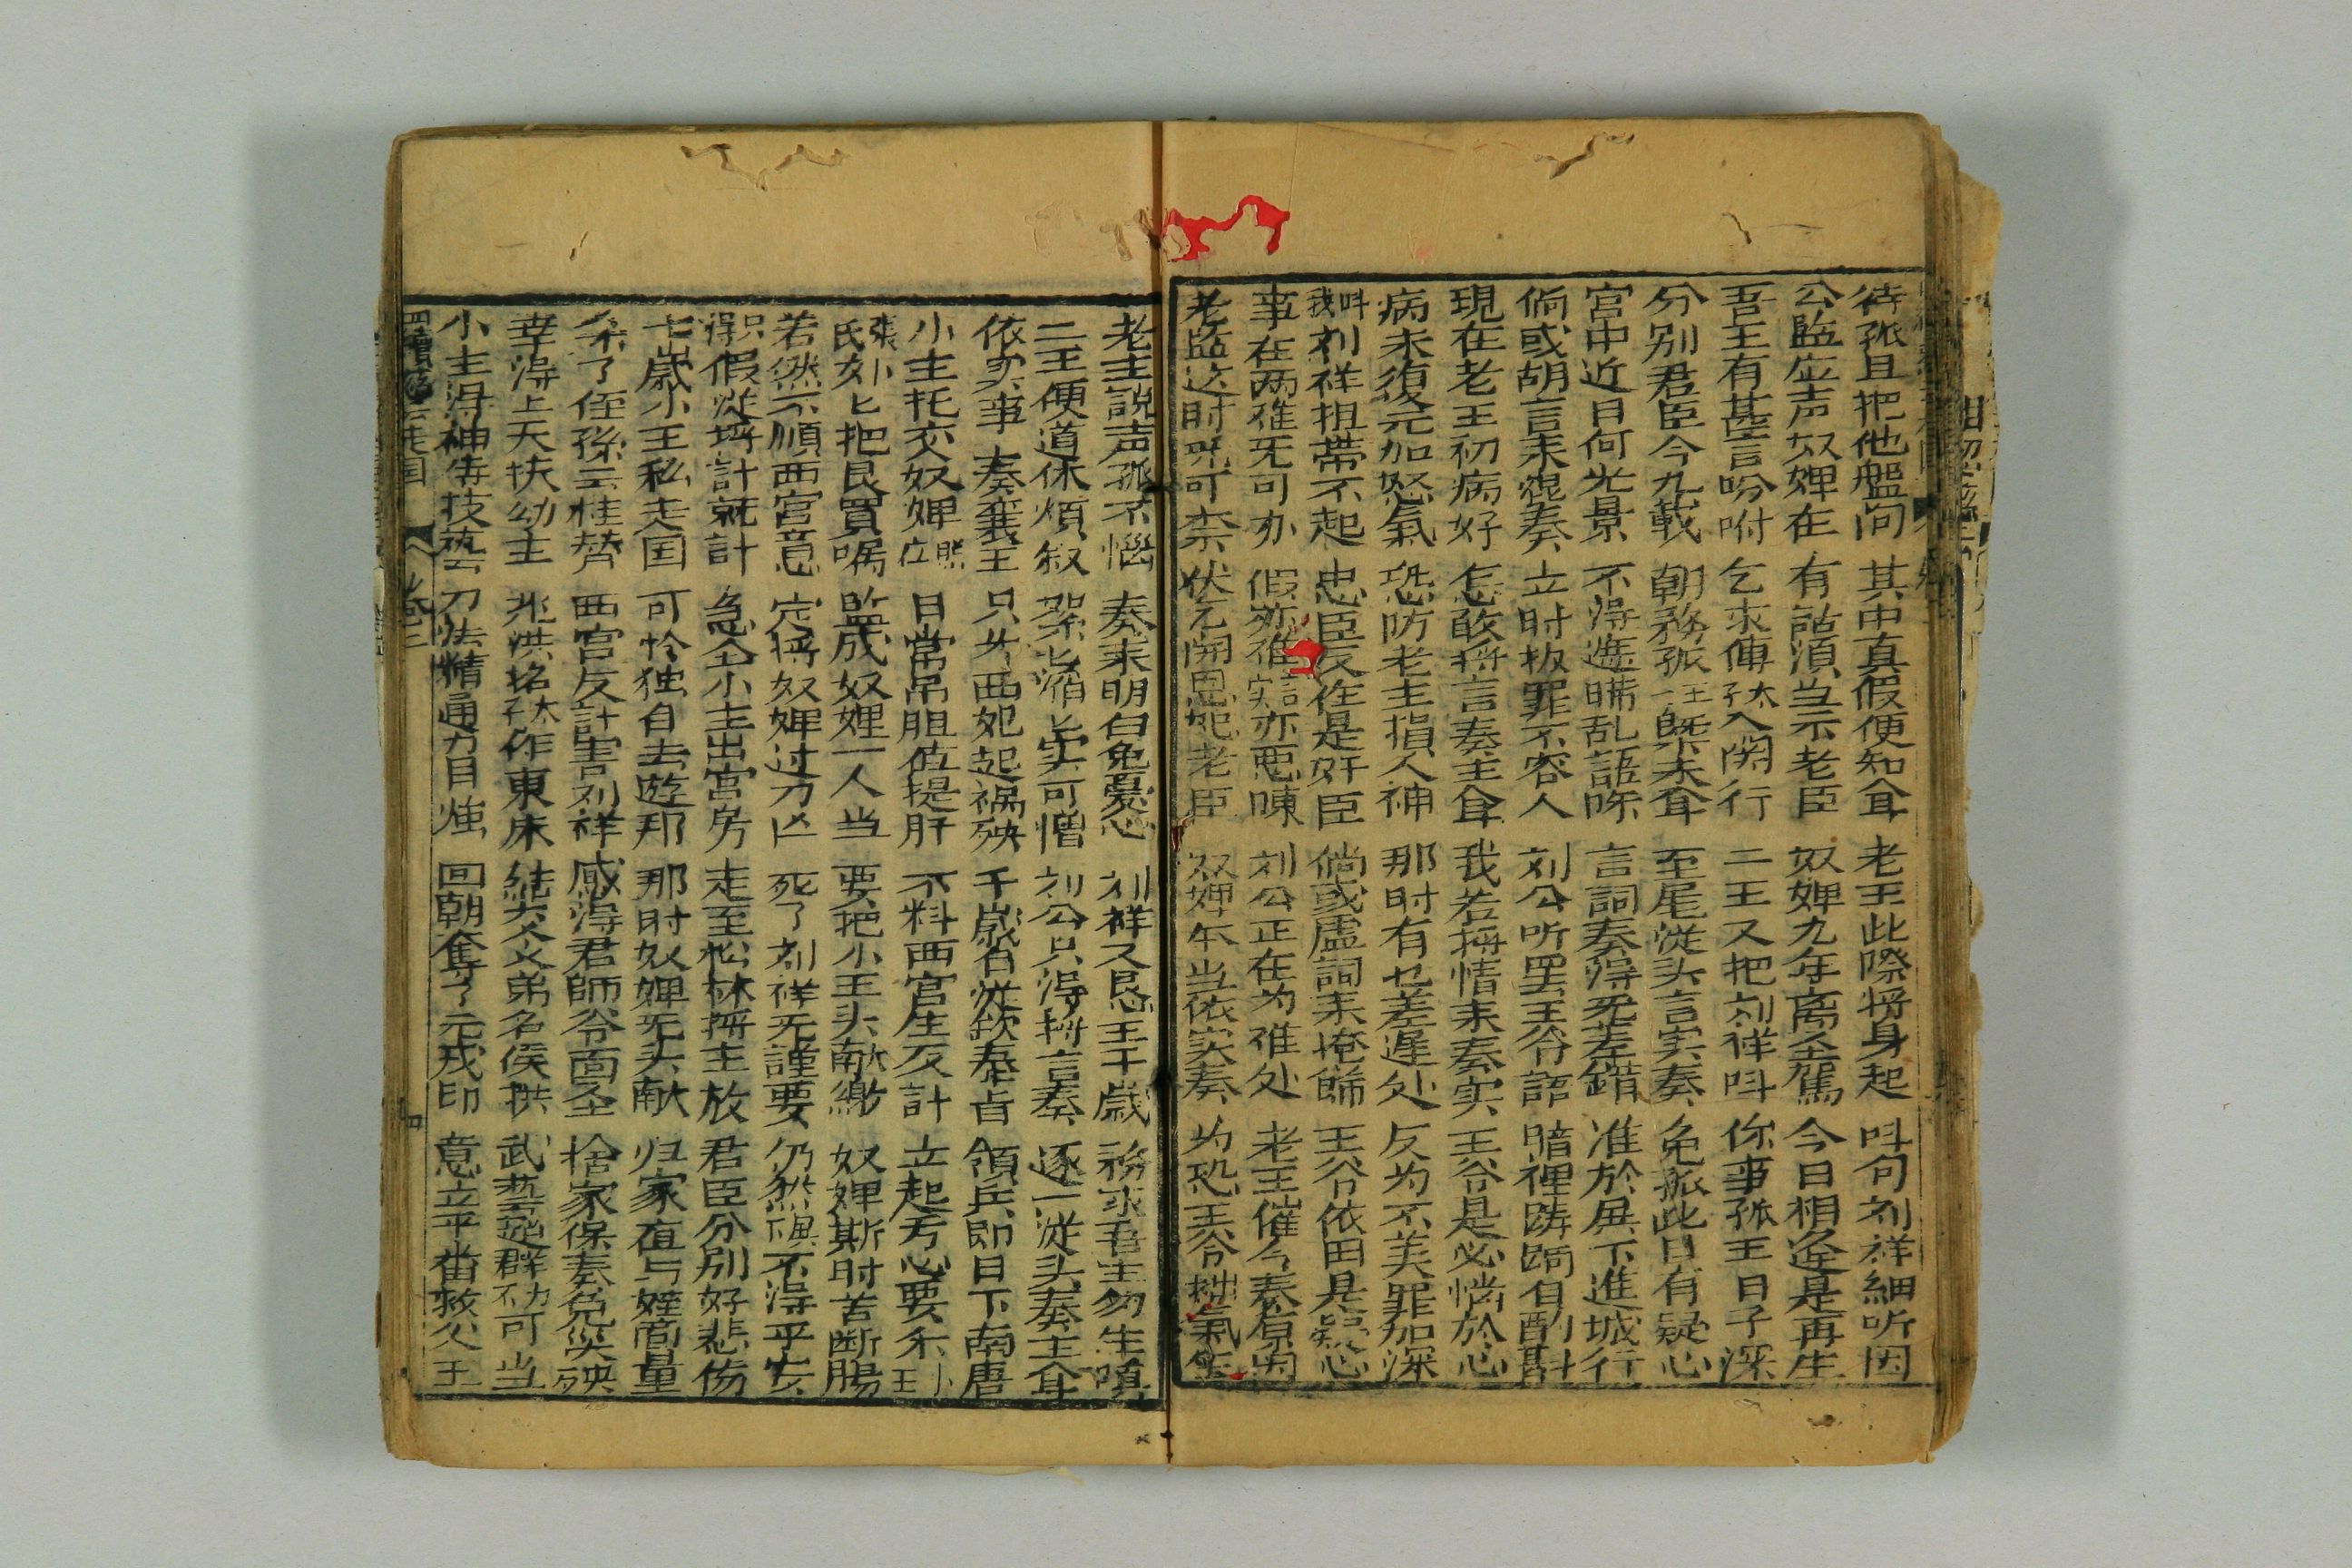 待孤且把他盤问 其中真假便知耸 老王此際将身起 呌句刘祥細听因
公監应声奴婢在 有話湏当示老臣 奴婢九年离圣駕 今日相逢是再生
吾王有甚言吩咐 乞求傳太子入関行 二王又把刘祥呌 你事孤王日子深
分别君臣今九載 朝務孤王一槩未耸 至尾從头言实奏 免孤此日有疑心
宮中近日何光景 不得遮瞒乱語 言詞奏得无差錯 准於展下進城行
倘或胡言来混奏 立时扳罪不容人 刘公听罢王爷語 暗裡踌蹰自酌斟
現在老王初病好 怎敢将言奏主耸 我若将情来奏实 王爷是必惱於心
病未復元加怒氣 恐防老主損人神 那时有乜差遲处 反为不美罪加深
呌我刘祥担帶不起 忠臣反作是奸臣 倘或虛詞来掩餙 王爷依旧是疑心
事在两难无可办 假亦难言实亦悪陳 刘公正在为难处 老王催令奏原因
老監这时无可柰 伏乞開恩恕老臣 奴婢午当依实奏 为恐王爷抛氣生
老主説声孤不惱 奏来明白免憂心 刘祥又恳王千歳 務求君主勿生嗔
二王便道休煩叙 絮ヒ滔ヒ实可憎 刘公只得将言奏 逐一從头奏主耸
依实事 奏襄王 只为西妃起禍殃 千歳自從欽奉旨 領兵即日下南唐
小主托交奴婢照应 日常吊胆值提肝 不料西宮生反計 立起歹心要杀小王
張氏妃ヒ把艮買嘱 監成奴婢一人当 要把小王头献繳 奴婢斯时苦断腸
若然不順西宮意 定将奴婢过刀亡 死了刘祥无謹要 仍然不得平安
只得假從将計就計 急全小主出宮房 走至松林将主放 君臣分别好悲傷
七歳小王私走国 可怜独自去遊邦 那时奴婢无头献 归家直与姪商量
杀了侄孫云桂替 西宮反計害刘祥 感得君師爷面圣 捨家保奏免災殃
幸得上天扶幼主 兆洪招太子作東床 結义父弟名侯拱 武藝超群不可当
小主得神传技藝 刀法精通力自強 回朝奪了元戎印 意立平番救父王